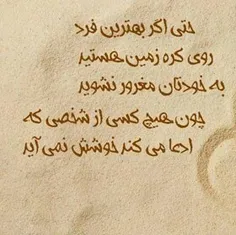 حتی اگر بهترین فرد
روی کره زمین هستید
به خودتان مغرور نشوید
چون هیچ کسی از شخصی که
ادعا می کند خوشش نمی آید